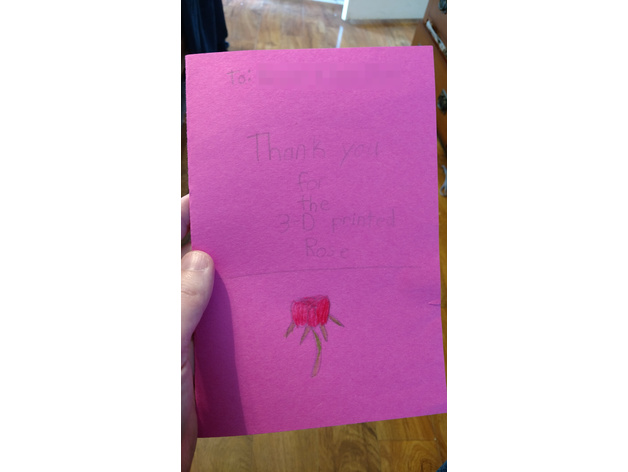 To:
Thank you
for
the
3-D printed
Rose